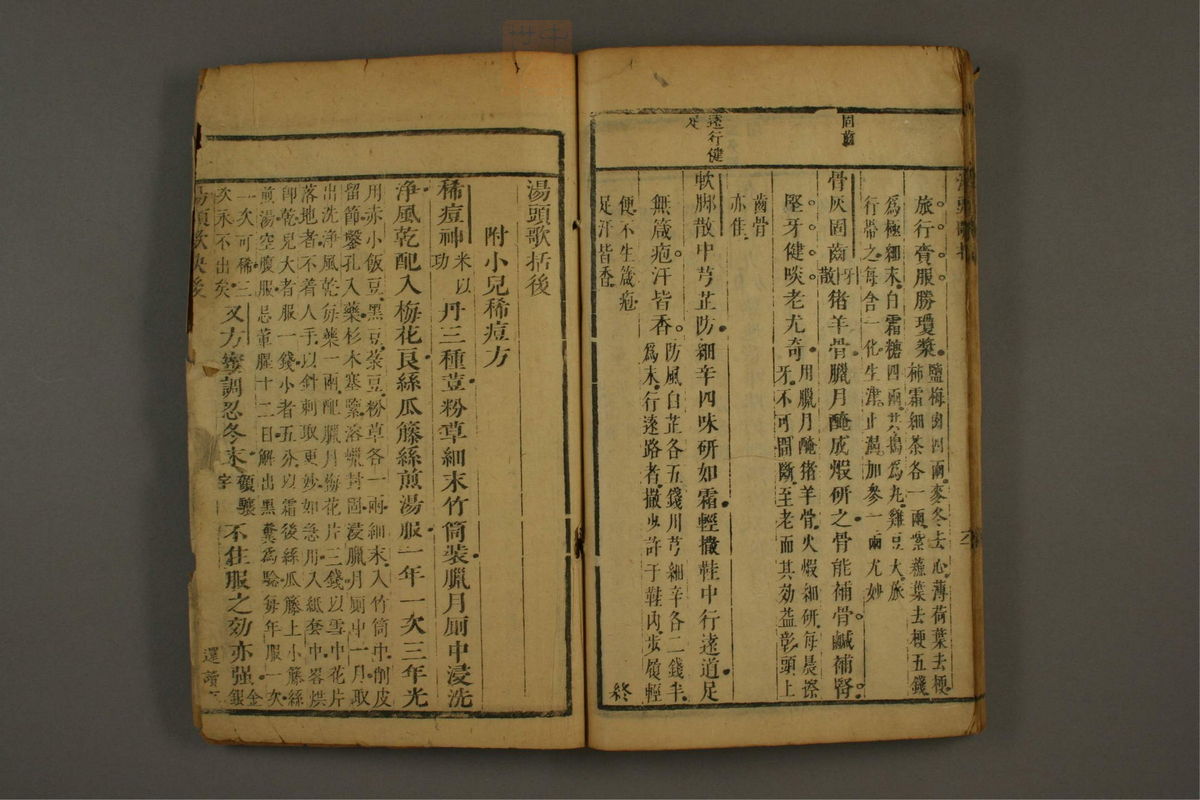 旅行賫服勝瓊漿鹽梅肉四兩麥冬去心薄荷葉去梗
柿霜細茶各一兩紫蘇葉去梗五錢
爲極細末白霜糖四兩共搗爲丸雞豆大旅
行帶之每含一化生津止渴加參一兩尤妙
固齒
骨灰固齒牙散猪羊骨臘月醃成煆研之骨能補骨鹹補腎
堅牙健啖老尤奇用臘月醃猪羊骨火煆細研每晨擦
牙不可間斷至老而其効益彰頭上
齒骨
亦佳
遠行健足
軟脚散中芎芷防細辛四味研如霜輕撒鞋中行遠道足
無箴疱汗皆香防風白芷各五錢川芎細辛各二錢半
爲末行遠路者撒少許于鞋內步履輕
便不生箴疱
足汗皆香
終
湯頭歌括後
附小兒稀痘方
稀痘神功米以丹三種荳粉草細末竹筒裝臘月厠中浸洗
淨風乾配入梅花良絲瓜籐絲煎湯服一年一次三年光
用赤小飯豆黑豆菉豆粉草各一兩細末入竹筒中削皮
留節鑿孔入藥杉木塞緊溶蠟封固浸臘月厠中一月取
出洗淨風乾每藥一兩配臘月梅花片三錢以雪中花片
落地者不着人手以針刺取更妙如急用入紙套中略烘
即乾兒大者服一錢小者五分以霜後絲瓜籐上小籐絲
煎湯空腹服忌葷腥十二日解出黑糞爲驗每年服一次
一次可稀三
次永不出矣又方蜜調忍冬末顧驤宇不住服之効亦强金
銀
湯頭歌訣後
還讀